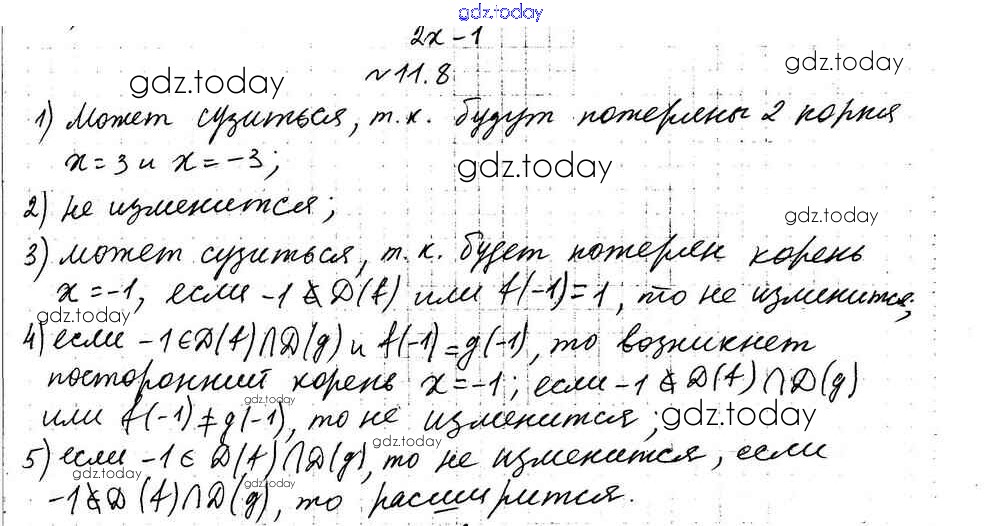 gdz.today
2x-1
gdz.today
№11.8
gdz.today
1) Может сузиться, т.к. будут потеряны 2 корня
x=3 и x=-3;
gdz.today
2) не изменится;
gdz.today
3) может сузиться, т.к. будет потерян корень
x=-1, если -1∉D(f) или f(-1)=1, то не изменится;
gdz.today
4) если -1∈D(f)∩D(g) и f(-1)=g(-1), то возникнет
посторонний корень x=-1; если -1∉D(f)∩D(g)
gdz.today
или f(-1)≠g(-1), то не изменится;
gdz.today
gdz.today
5) если -1∈D(f)∩D(g), то не изменится, если
gdz.today
gdz.today
-1∉D(f)∩D(g), то расширится.